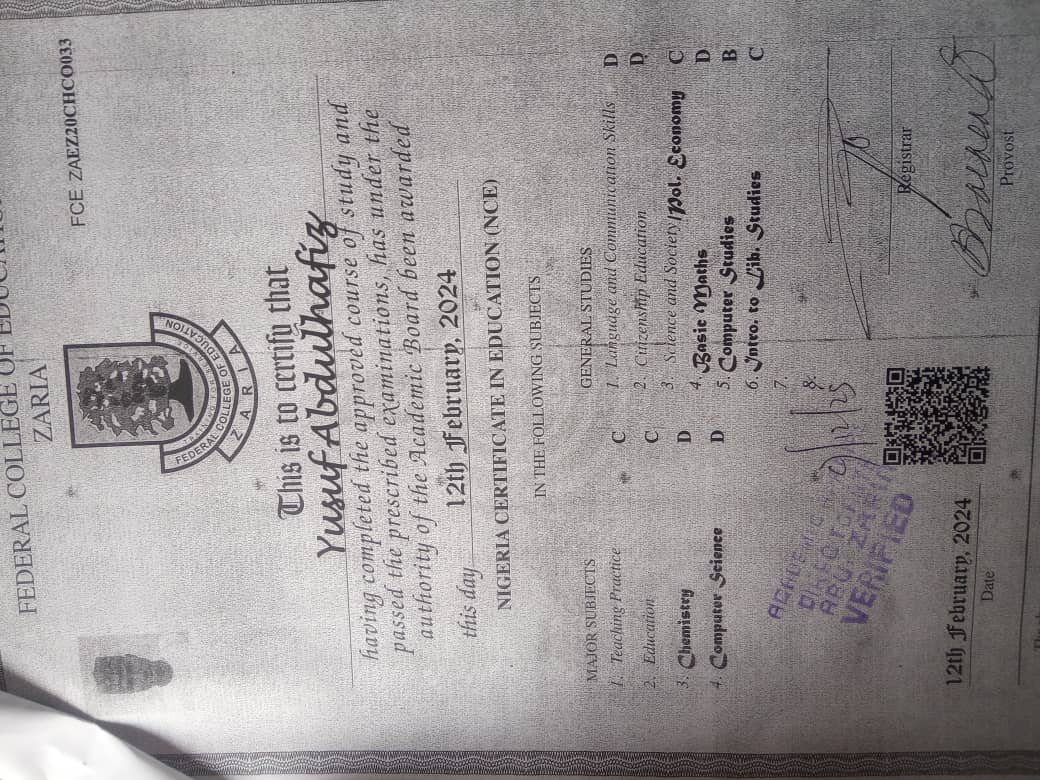 FEDERAL COLLEGE OF EDUCATION
ZARIA
FCE ZAEZ20CHCO033
FEDERAL COLLEGE OF EDUCATION
ZARIA
This is to certify that
Yusuf Abdulhafiz
having completed the approved course of study and
passed the prescribed examinations, has under the
authority of the Academic Board been awarded
this day 12th February, 2024
NIGERIA CERTIFICATE IN EDUCATION (NCE)
IN THE FOLLOWING SUBJECTS
MAJOR SUBJECTS
1. Teaching Practice C
2. Education C
3. Chemistry D
4. Computer Science D
GENERAL STUDIES
1. Language and Communication Skills D
2. Citizenship Education D
3. Science and Society/Pol. Economy C
4. Basic Maths D
5. Computer Studies B
6. Intro. to Lib. Studies C
7.
8.
ACADEMIC
ABU. ZARIA
VERIFIED
12th February, 2024
Date
Registrar
Provost